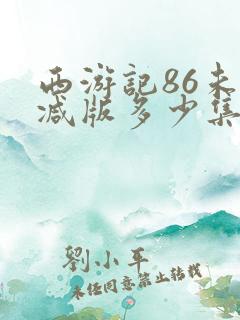 西游記86未
减版多少集
劉小平
未经同意禁止转载